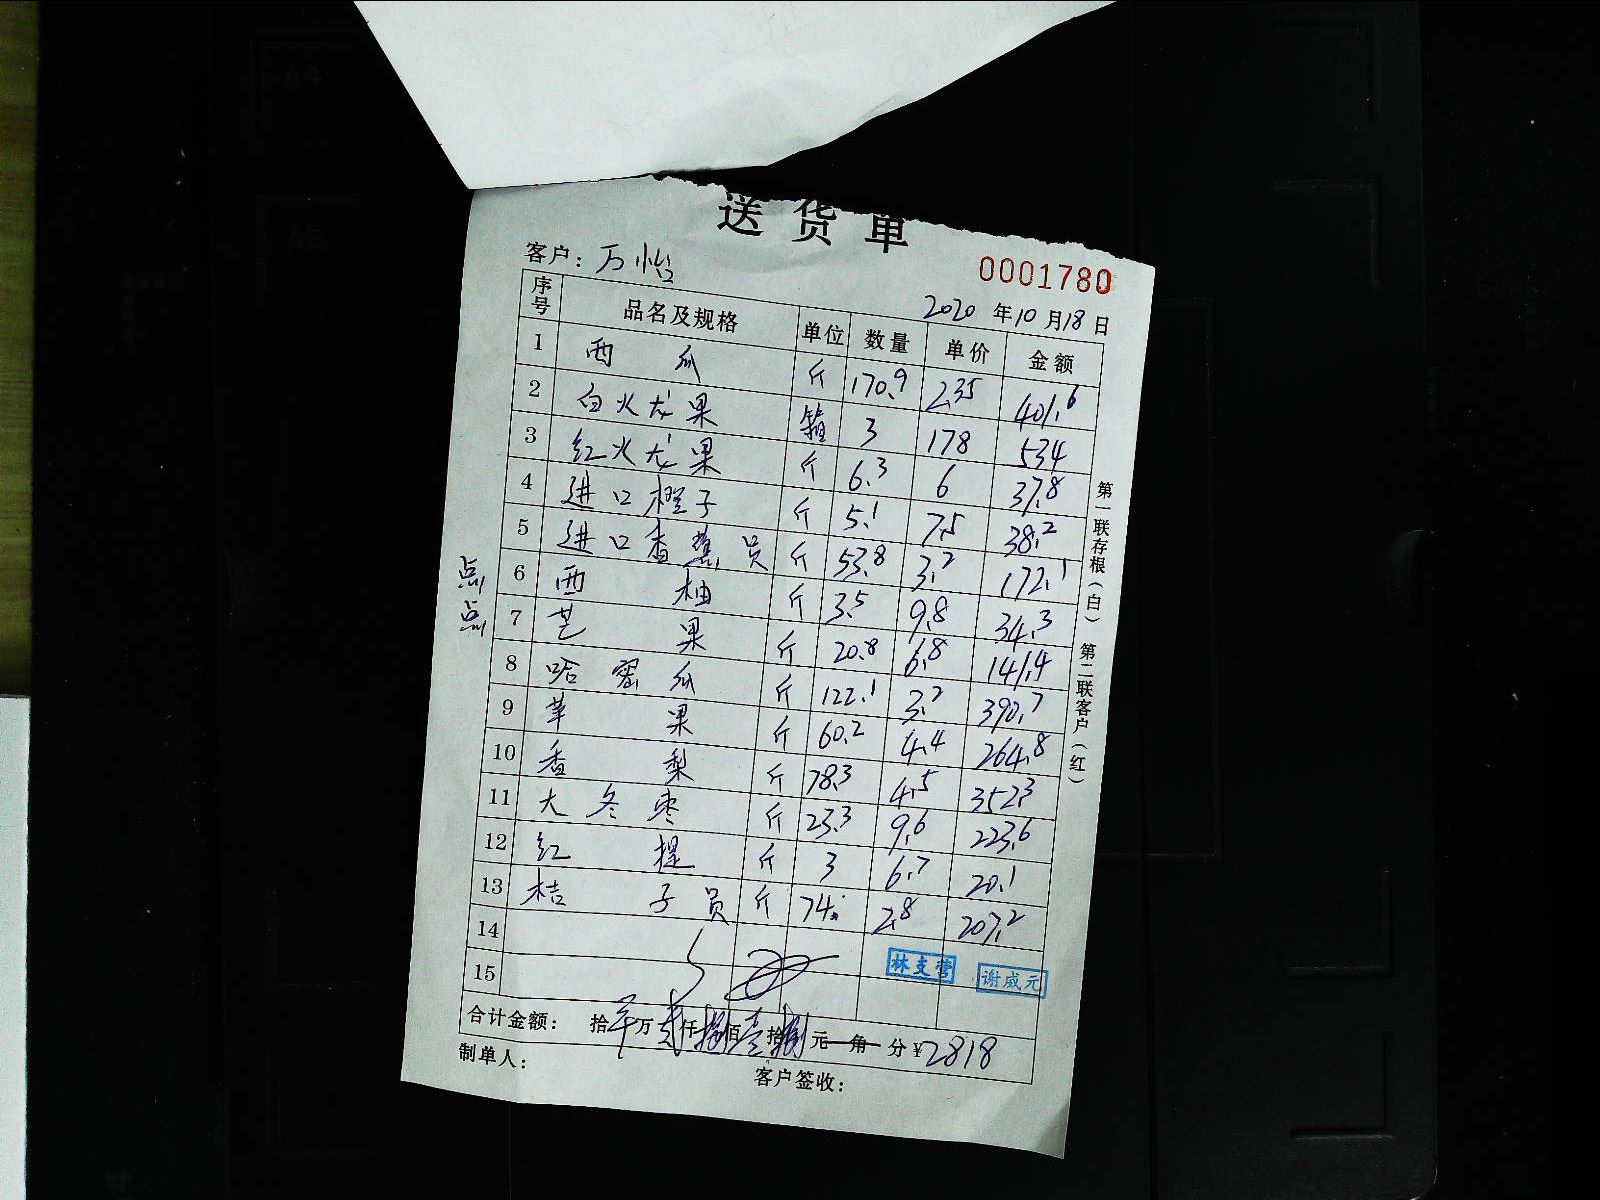 送货单
客户：万怡
0001780
2020年10月18日
序号 品名及规格 单位 数量 单价 金额
1 西瓜 斤 170.9 2.35 401.6
2 白火龙果 箱 3 178 534
3 红火龙果 斤 6.3 6 37.8
4 进口橙子 斤 5.1 7.5 38.2
5 进口香蕉 员 斤 53.8 3.2 172.1
6 西柚 斤 3.5 9.8 34.3
7 芒果 斤 20.8 6.8 141.4
8 哈密瓜 斤 122.1 3.2 390.7
9 苹果 斤 60.2 4.4 264.8
10 香梨 斤 78.3 4.5 352.3
11 大冬枣 斤 23.3 9.6 223.6
12 红提 斤 3 6.7 20.1
13 桔子 员 斤 74 2.8 207.2
14
15
林支营 谢威元
合计金额： 拾 万贰仟捌佰壹拾捌元 角 分 ¥2818
制单人：
客户签收：
点点
第一联存根（白） 第二联客户（红）